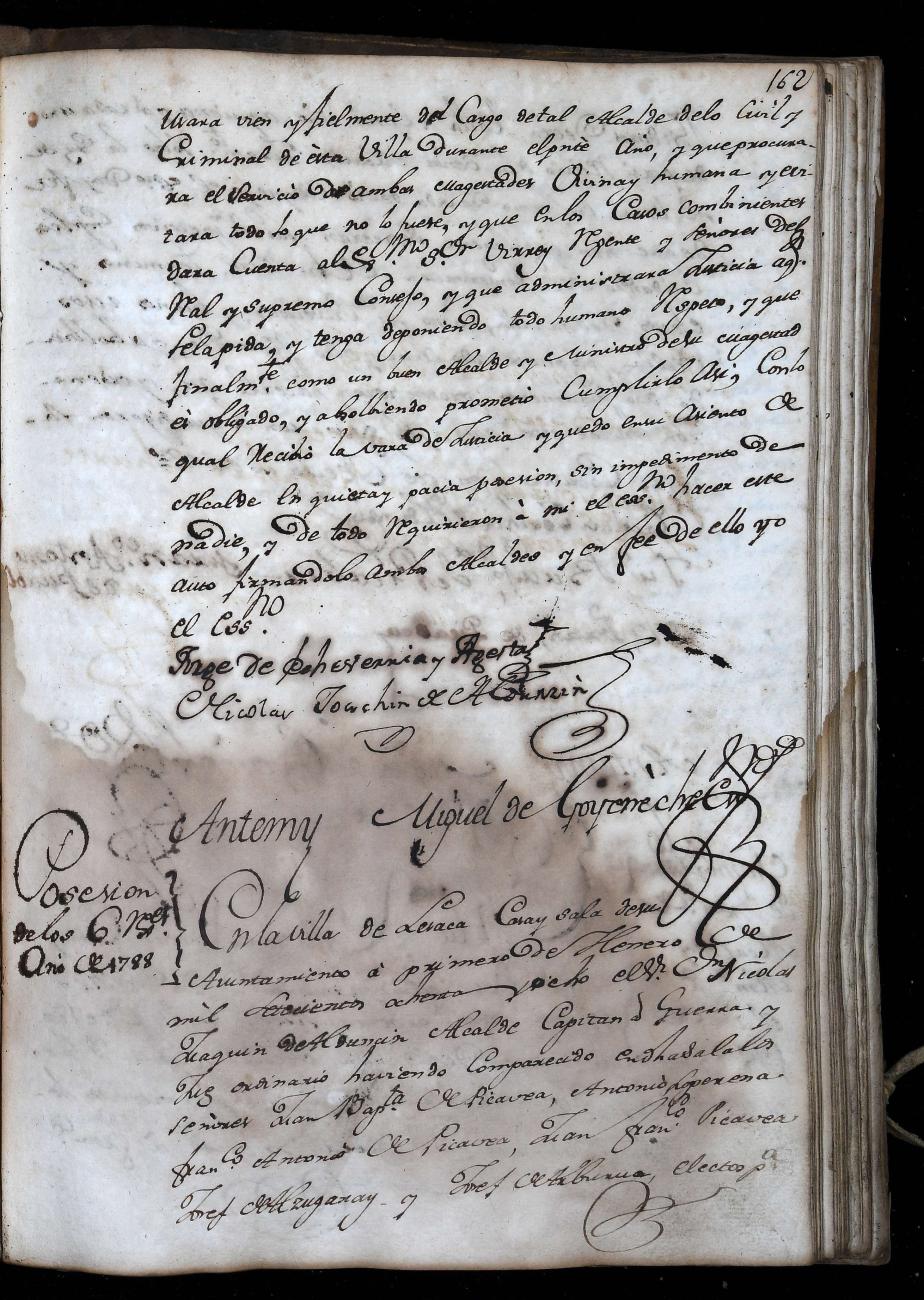 162
Usara vien y fielmente del Cargo de tal Alcalde delo Civil y
Criminal de esta Villa durante el pnte Año, y que procura-
ra el servicio de ambas Magestades Divina y humana y evi-
tara todo lo que no lo fuese, y que en los Casos combinientes
dara Cuenta al Ex.mo S.or Virrey Rgente y señores del
Ral y Supremo Consejo, y que administrara Justicia aq.n
se la pida, y tenga deponiendo todo humano Rspeto, y que
finalm.te como un buen Alcalde y Ministro de su Magestad
es obligado, y absolbiendo prometió Cumplirlo Asi, Con lo
qual Recibió la vara de Justicia y quedo en su Asiento de
Alcalde En quieta y pacia posesion, sin impedimento de
nadie, y de todo Rquirieron à mi el ess.no hacer este
auto firmandolo Ambos Alcaldes y en fee de ello yo
el Ess.no
Jorge de Echeverria y Apestia
Nicolas Joachin de Aldunzin
Antemy Miguel de Goyeneche Ess.no
Posesion
de los 6 Rres.
Año de 1788
En la villa de Lesaca Casa y sala de su
Ayuntamiento à primero de Henero de
mil setecientos ochenta y ocho el Sr. Dn Nicolas
Juaquin de Aldunzin Alcalde Capitan à Guerra y
Juez ordinario haviendo Comparecido en dha sala los
señores Juan Bap.ta de Picavea, Antonio Loperena
fran.co Antonio de Picavea, Juan fran.co Picavea
Josef de Alzugaray y Josef de Arburua, electos p.a